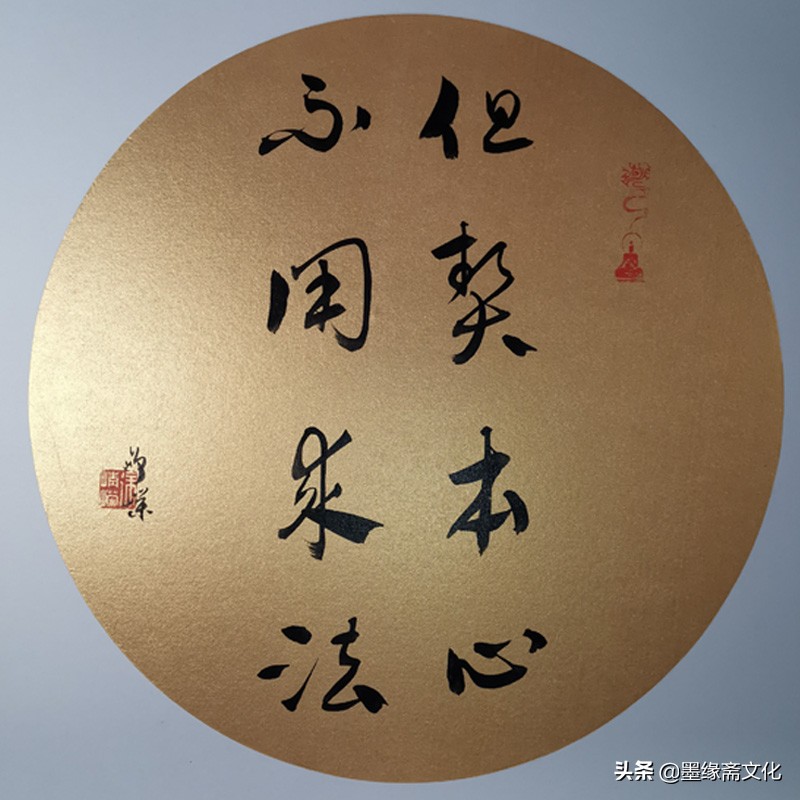 但契本心
不用求法
头条 @墨缘斋文化